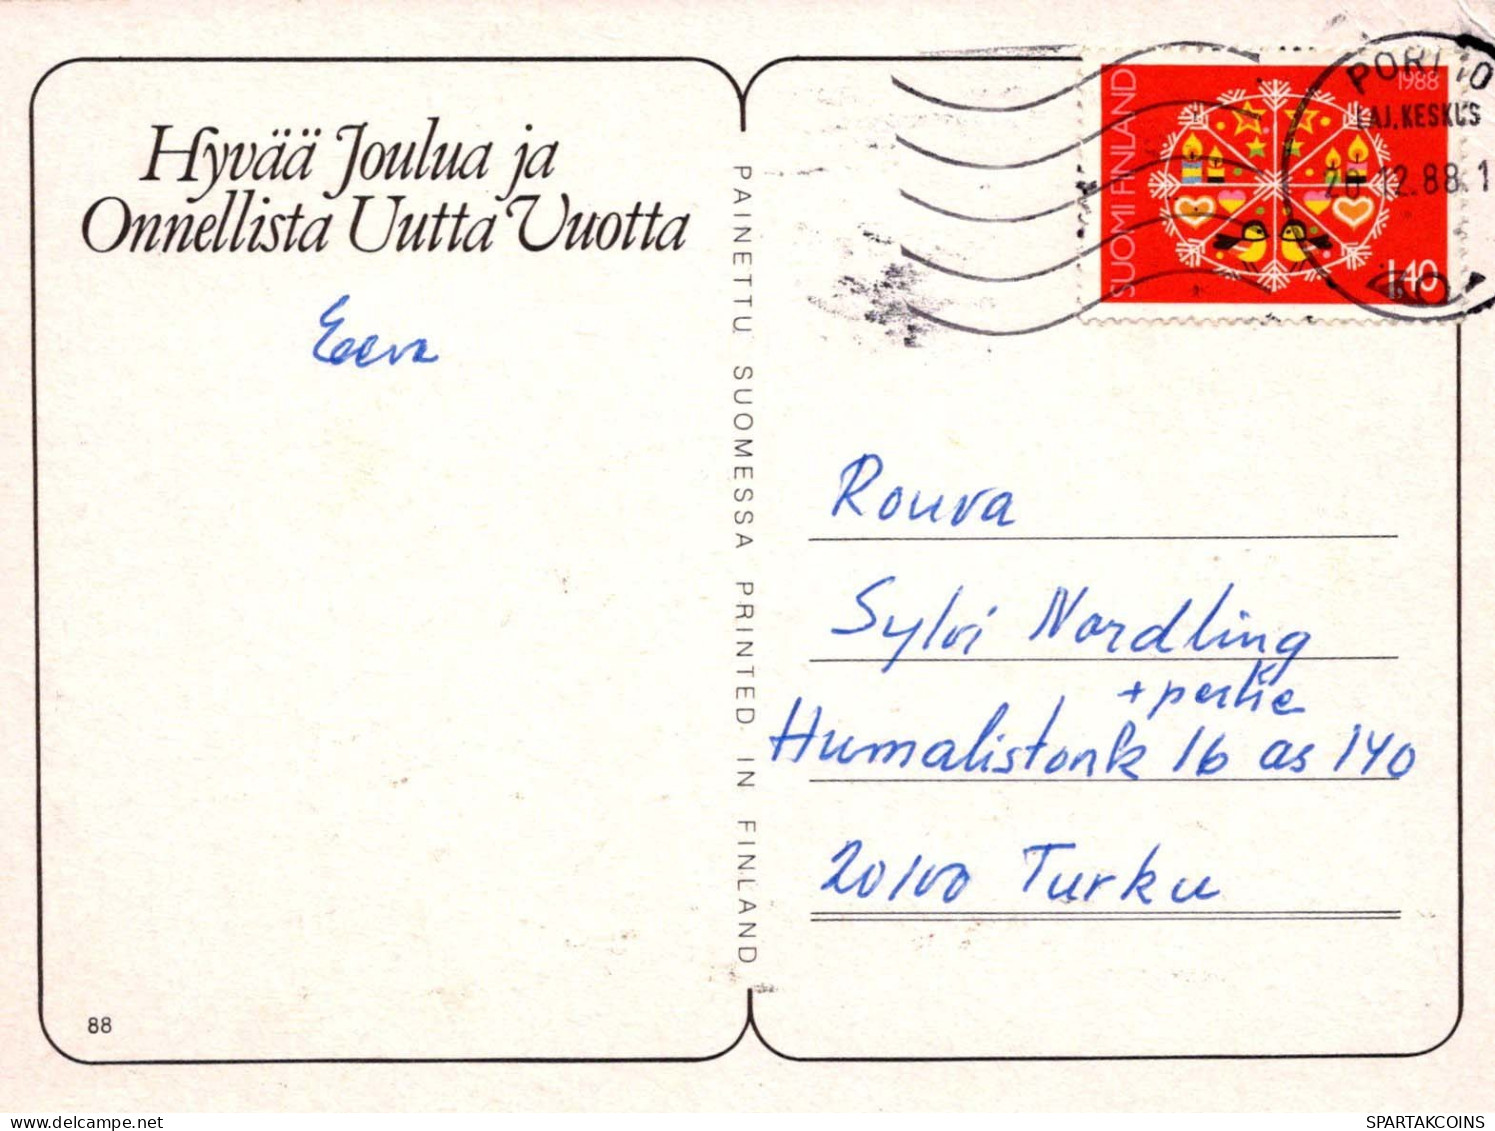 Hyvää Joulua ja
Onnellista Uutta Vuotta
Eeva
88
PAINETTU SUOMESSA PRINTED IN FINLAND
SUOMI FINLAND
1988
1,40
LAJ.KESKUS
12.88.1
Rouva
Sylvi Nordling
+ perhe
Humalistonk 16 as 140
20100 Turku
SPARTAKCOINS